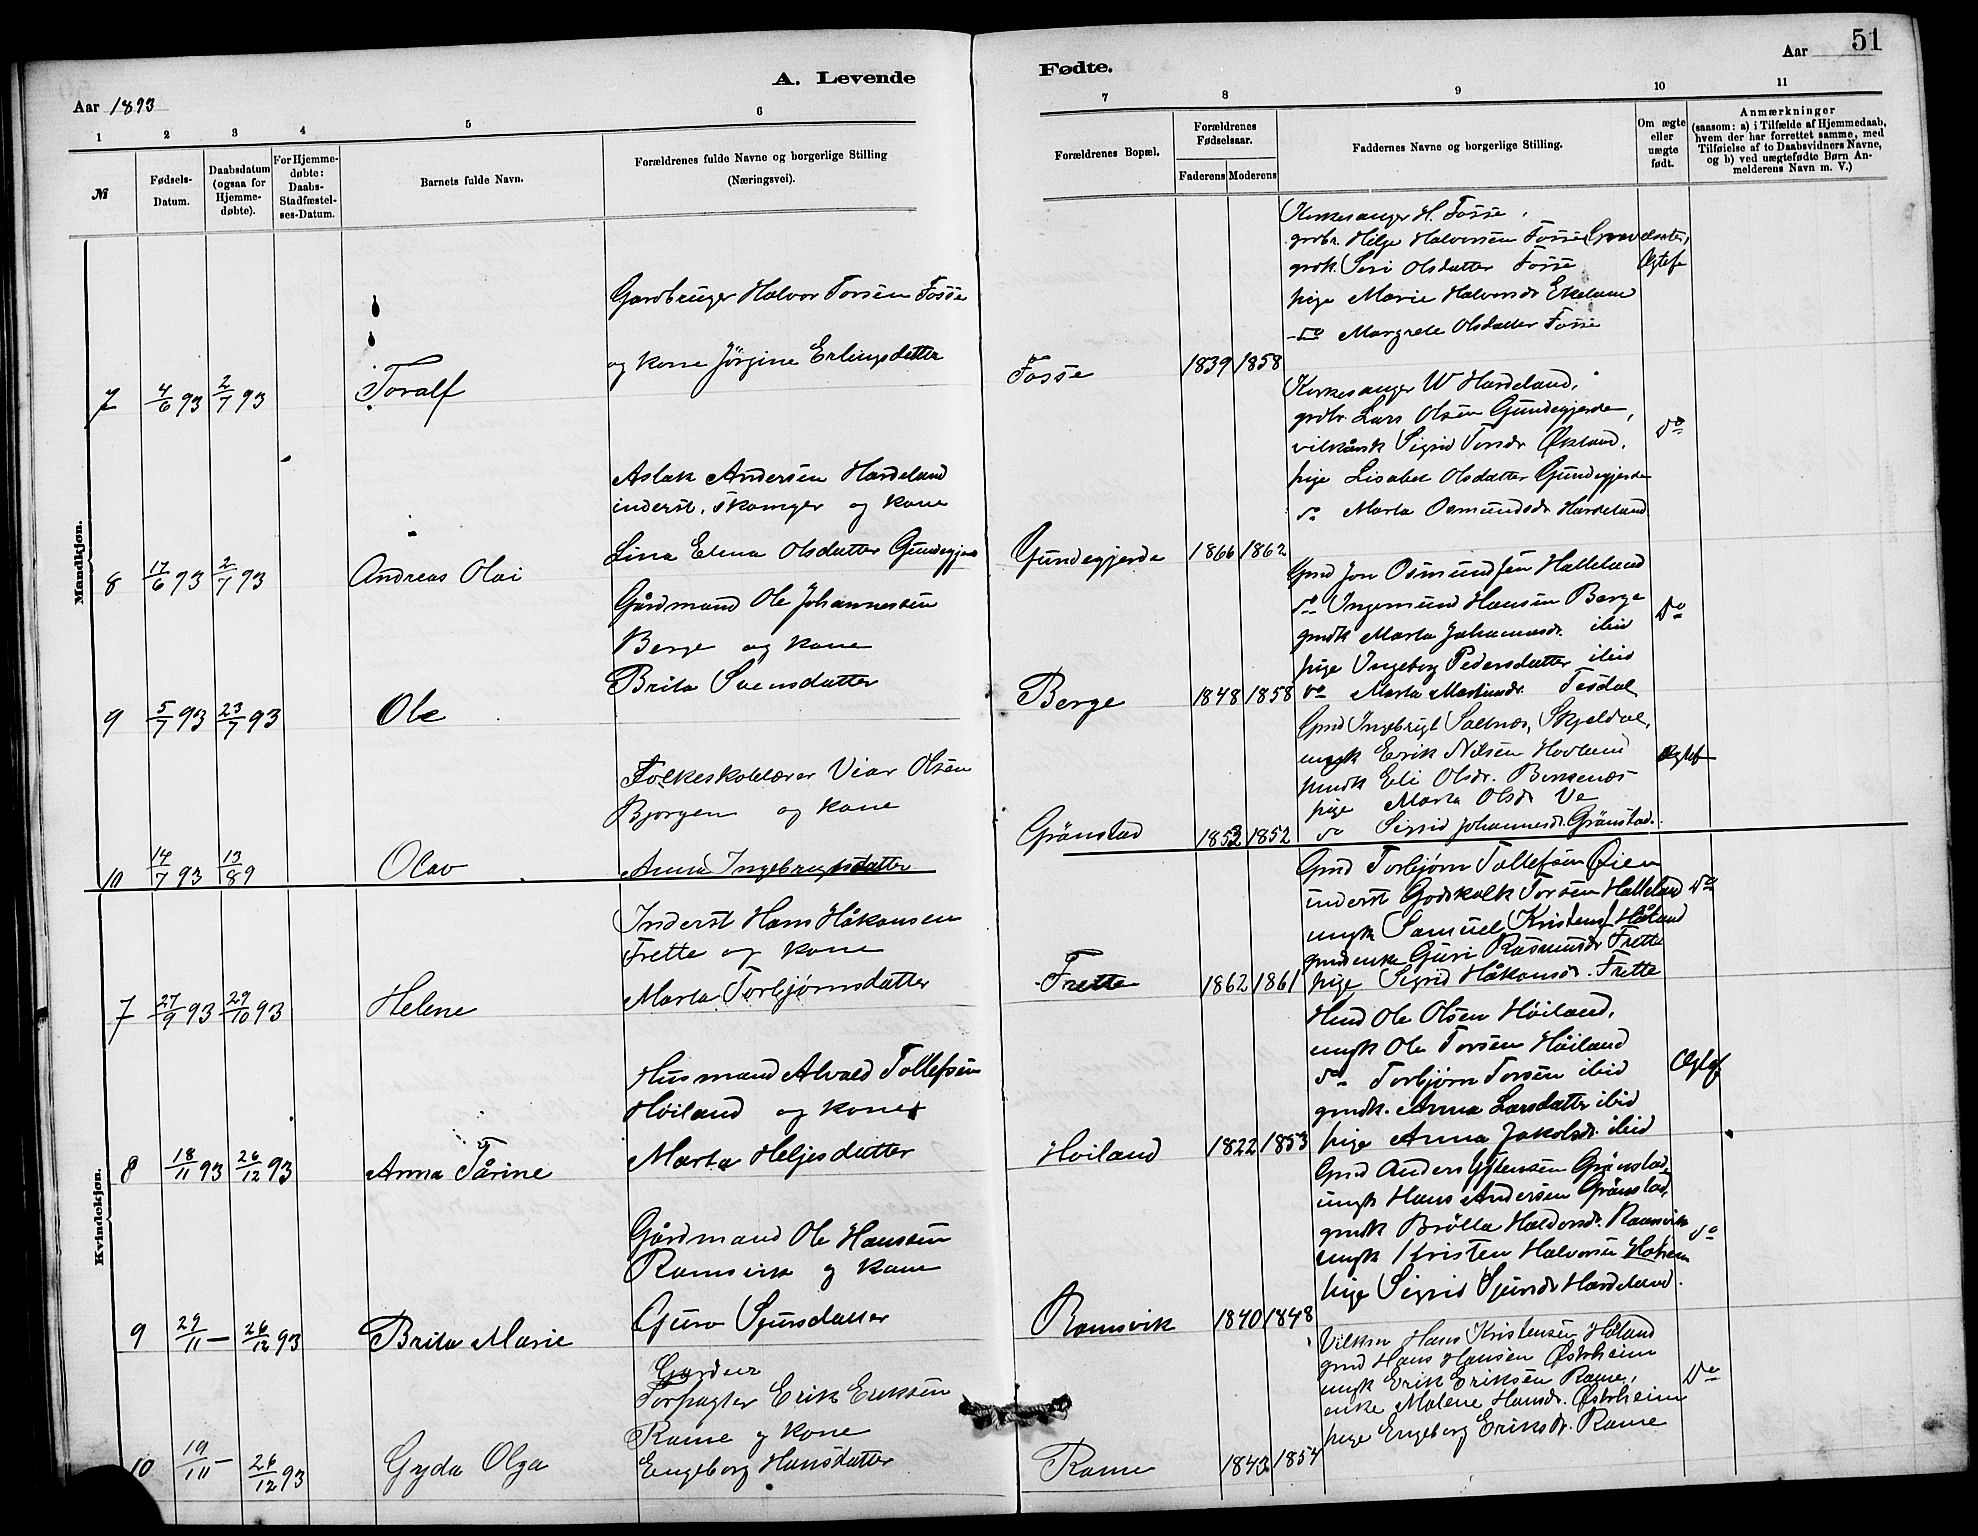 51
A. Levende Fødte.
Aar 1893
Aar
1 2 3 4 5 6 7 8 9 10 11
№
Fødsels-Datum.
Daabsdatum (ogsaa for Hjemme-døbte).
For Hjemme-døbte: Daabs-Stadfæstel-ses-Datum.
Barnets fulde Navn.
Forældrenes fulde Navne og borgerlige Stilling (Næringsvei).
Forældrenes Bopæl.
Forældrenes Fødselsaar.
Faderens Moderens
Faddernes Navne og borgerlige Stilling.
Om ægte eller uægte født.
Anmærkninger
(saasom: a) i Tilfælde af Hjemmedaab, hvem der har forrettet samme, med Tilføielse af to Daabsvidners Navne, og b) ved uægtefødte Børn Anmelderens Navn m. V.)
Mandkjøn.
7 4/6 93 2/7 93 Toralf
Gardbruger Halvor Torsen Fosse
og kone Jørgine Erlingsdatter
Fosse 1839 1858
Kirkesanger H. Fosse,
grdbr. Helge Halvorsen Fosse
grdk. Siri Olsdatter Fosse
pige Marie Halvorsdr Ekeland
do Margrete Olsdatter Fosse
Ægtef
8 17/6 93 2/7 93 Andreas Olai
Aslak Andersen Hardeland
inderst, skomger og kone
Lina Elena Olsdatter Gundegjerde
Gundegjerde 1866 1862
Kirkesanger W Hardeland,
grdbr. Lars Olsen Gundegjerde,
vilkårsk Sigrid Torsdr Økland,
pige Lisabet Olsdatter Gundegjerde
do Marta Osmundsdr Hardeland
do
9 5/7 93 23/7 93 Ole
Gårdmand Ole Johannessen
Berge og kone
Brita Svensdatter
Berge 1848 1858
Gmd Jon Osmundsen Halleland
do Ingemund Hansen Berge
gmdk Marta Johannesdr. ibid
pige Ingeborg Pedersdatter ibid
do Marta Martinsdr. Tesdal
do
10 14/7 93 13/89 Olav
Folkeskolelærer Viar Olsen
Bjorgen og kone
Anna Ingebrigtsdatter
Grönstad 1852 1852
Gmd Ingebrigt Saltnes, Skjeldal,
ungk Erik Nilsen Hovland
hmdk Eli Olsdr.
pige Marta Olsdr Ve
do Sigrid Johannesdr. Grönstad.
Ægtef
Kvindekjøn.
7 27/9 93 29/10 93 Helene
Inderst Hans Håkonsen
Frette og kone
Marta Torbjörnsdatter
Frette 1862 1861
Gmd Torbjørn Tollefsen Øien
inderst Godskalk Torsen Halleland
ungk Samuel Kristens. Håland
gmdenke Guri Rasmusdr Frette
pige Sigrid Håkonsdr. Frette
do
8 18/11 93 26/12 93 Anna Tårine
Husmand Alvald Tollefsen
Höiland og kone
Marta Heljesdatter
Höiland 1822 1853
Hmd Ole Olsen Höiland,
ungk Ole Torsen Höiland
do Torbjørn Torsen ibid
gmdk. Anna Larsdatter ibid
pige Anna Jakobsdr. ibid
Ægtef
9 29/11 – 26/12 93 Brita Marie
Gårdmand Ole Hansen
Ramsvik og kone
Guro Sjursdatter
Ramsvik 1840 1848
Gmd Anders Grönstad,
ungk Hans Andersen Grönstad,
gmdk Brölla Haldorsdr. Ramsvik
ungk Kristen Halvorsen
pige Sigrid Sjursdr Hardeland.
do
10 19/11 – 26/12 93 Gyda Olga
Gardser
Forpagter Erik Eriksen
Rame og kone
Engeborg Hansdatter
Rame 1843 1854
Vilkm Hans Kristensen Håland
gmd Hans Hansen Østrheim
ungk Erik Eriksen Rame,
enke Malene Hansdr. Østrheim
pige Engeborg Eriksdr. Rame
do